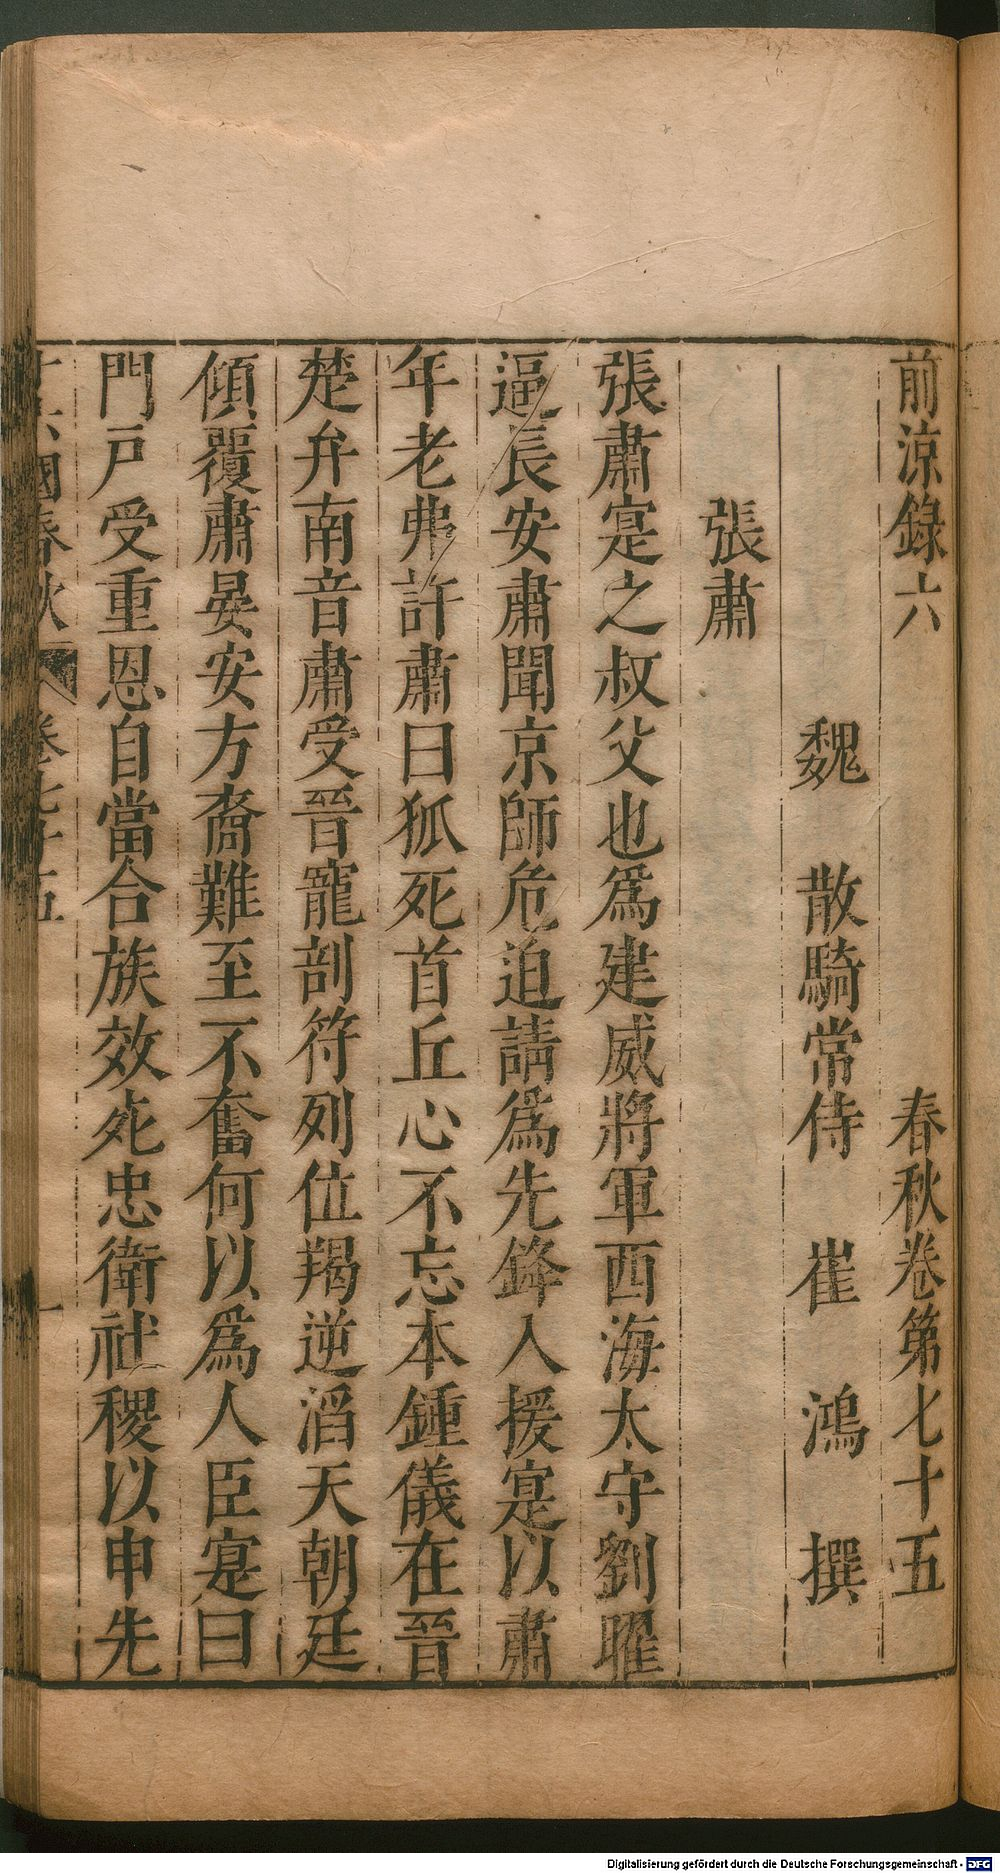 前涼錄六 春秋卷第七十五
魏 散騎常侍 崔 鴻 撰
張肅
張肅寔之叔父也爲建威將軍西海太守劉曜
逼長安肅聞京師危迫請爲先鋒入援寔以肅
年老弗許肅曰狐死首丘心不忘本鍾儀在晉
楚弁南音肅受晉寵剖符列位羯逆滔天朝廷
傾覆肅晏安方裔難至不奮何以爲人臣寔曰
門戶受重恩自當合族效死忠衛社稷以申先
十六國春秋 卷七十五 一
Digitalisierung gefördert durch die Deutsche Forschungsgemeinschaft - DFG